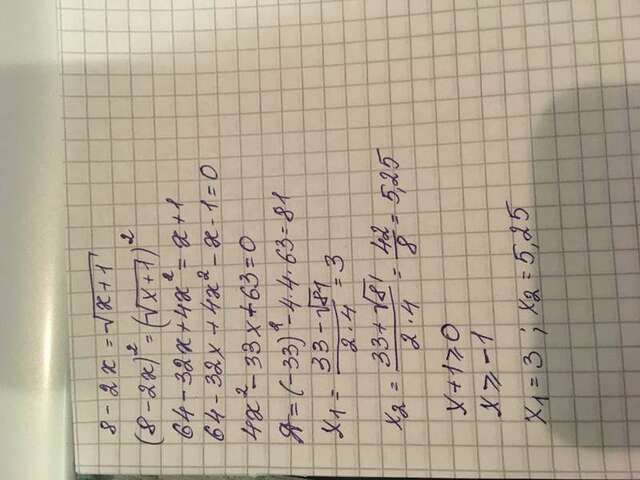 8 - 2x = √x+1
(8 - 2x)² = (√x+1)²
64 - 32x + 4x² = x + 1
64 - 32x + 4x² - x - 1 = 0
4x² - 33x + 63 = 0
Д = (-33)² - 4·4·63 = 81
x₁ = (33 - √81)/(2·4) = 3
x₂ = (33 + √81)/(2·4) = 42/8 = 5,25
x + 1 ⩾ 0
x ⩾ -1
x₁ = 3 ; x₂ = 5,25